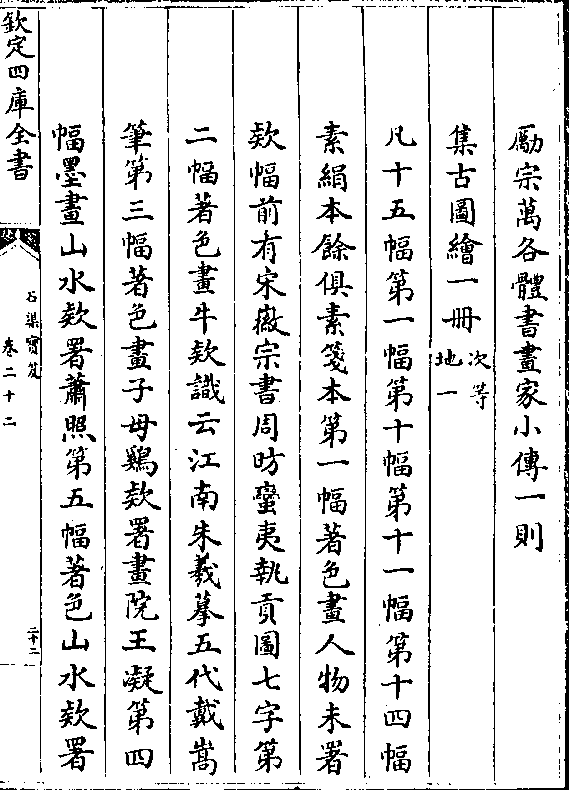 勵宗萬各體書畫家小傳一則
集古圖繪一冊次等
地一
凡十五幅第一幅第十幅第十一幅第十四幅
素絹本餘俱素箋本第一幅著色畫人物未署
欵幅前有宋徽宗書周昉蠻夷執貢圖七字第
二幅著色畫牛欵識云江南朱羲摹五代戴嵩
筆第三幅著色畫子母鷄欵署畫院王凝第四
幅墨畫山水欵署蕭照第五幅著色山水欵署
欽定四庫全書
石渠寶笈
卷二十二
二十二